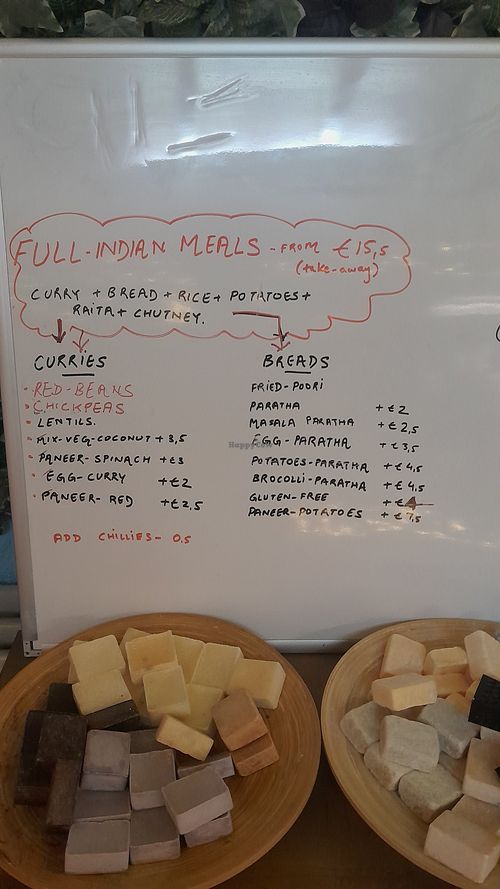 FULL-INDIAN MEALS - FROM €15,5
(take-away)
CURRY + BREAD + RICE + POTATOES +
RAITA + CHUTNEY.
CURRIES
- RED-BEANS
- CHICKPEAS
- LENTILS.
- MIX-VEG-COCONUT + 3,5
- PANEER-SPINACH + €3
- EGG-CURRY + €2
- PANEER-RED + €2,5
ADD CHILLIES - 0.5
BREADS
FRIED-POORI
PARATHA + €2
MASALA PARATHA + €2,5
EGG-PARATHA + €3,5
POTATOES-PARATHA + €4,5
BROCOLLI-PARATHA + €4,5
GLUTEN-FREE + €
PANEER-POTATOES + €7,5
HappyCow